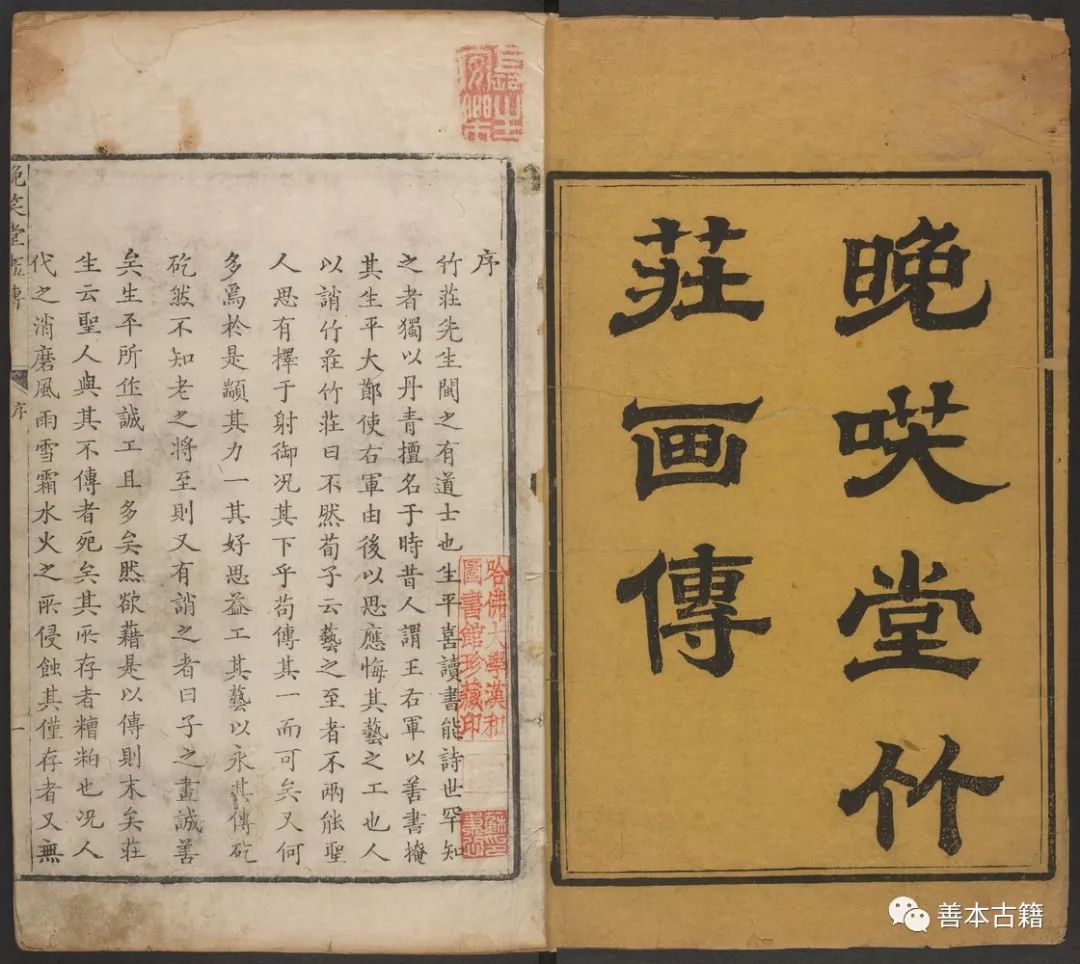 晚𥬇堂竹
莊画傳
序
竹莊先生閩之有道士也生平喜讀書能詩世罕知
之者獨以丹青擅名于時昔人謂王右軍以善書掩
其生平大鄭使右軍由後以思應悔其藝之工也人
以誚竹莊竹莊曰不然荀子云藝之至者不兩能聖
人思有擇于射御况其下乎苟傳其一而可矣又何
多焉於是顓其力一其好思益工其藝以永其傳矻
矻然不知老之將至則又有誚之者曰子之畫誠善
矣生平所作誠工且多矣然欲藉是以傳則末矣莊
生云聖人與其不傳者死矣其所存者糟粕也况人
代之消磨風雨雪霜水火之所侵蝕其僅存者又無
晚笑堂畫傳
序
一
哈佛大學漢和
圖書館珍藏印
善本古籍